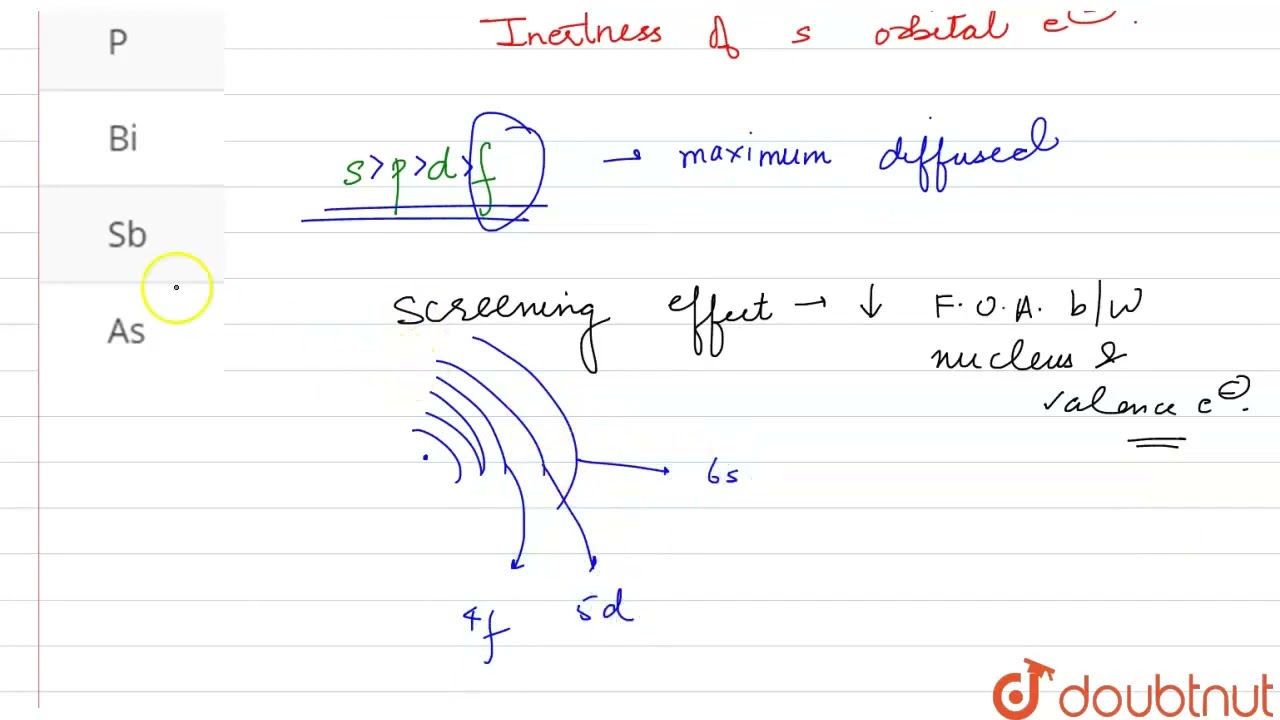 P
Bi
Sb
As
Inertness of s orbital e⊖.
s>p>d>f → maximum diffused
screening effect → ↓ F.O.A. b/w
nucleus &
valence e⊖.
6s
4f 5d
doubtnut